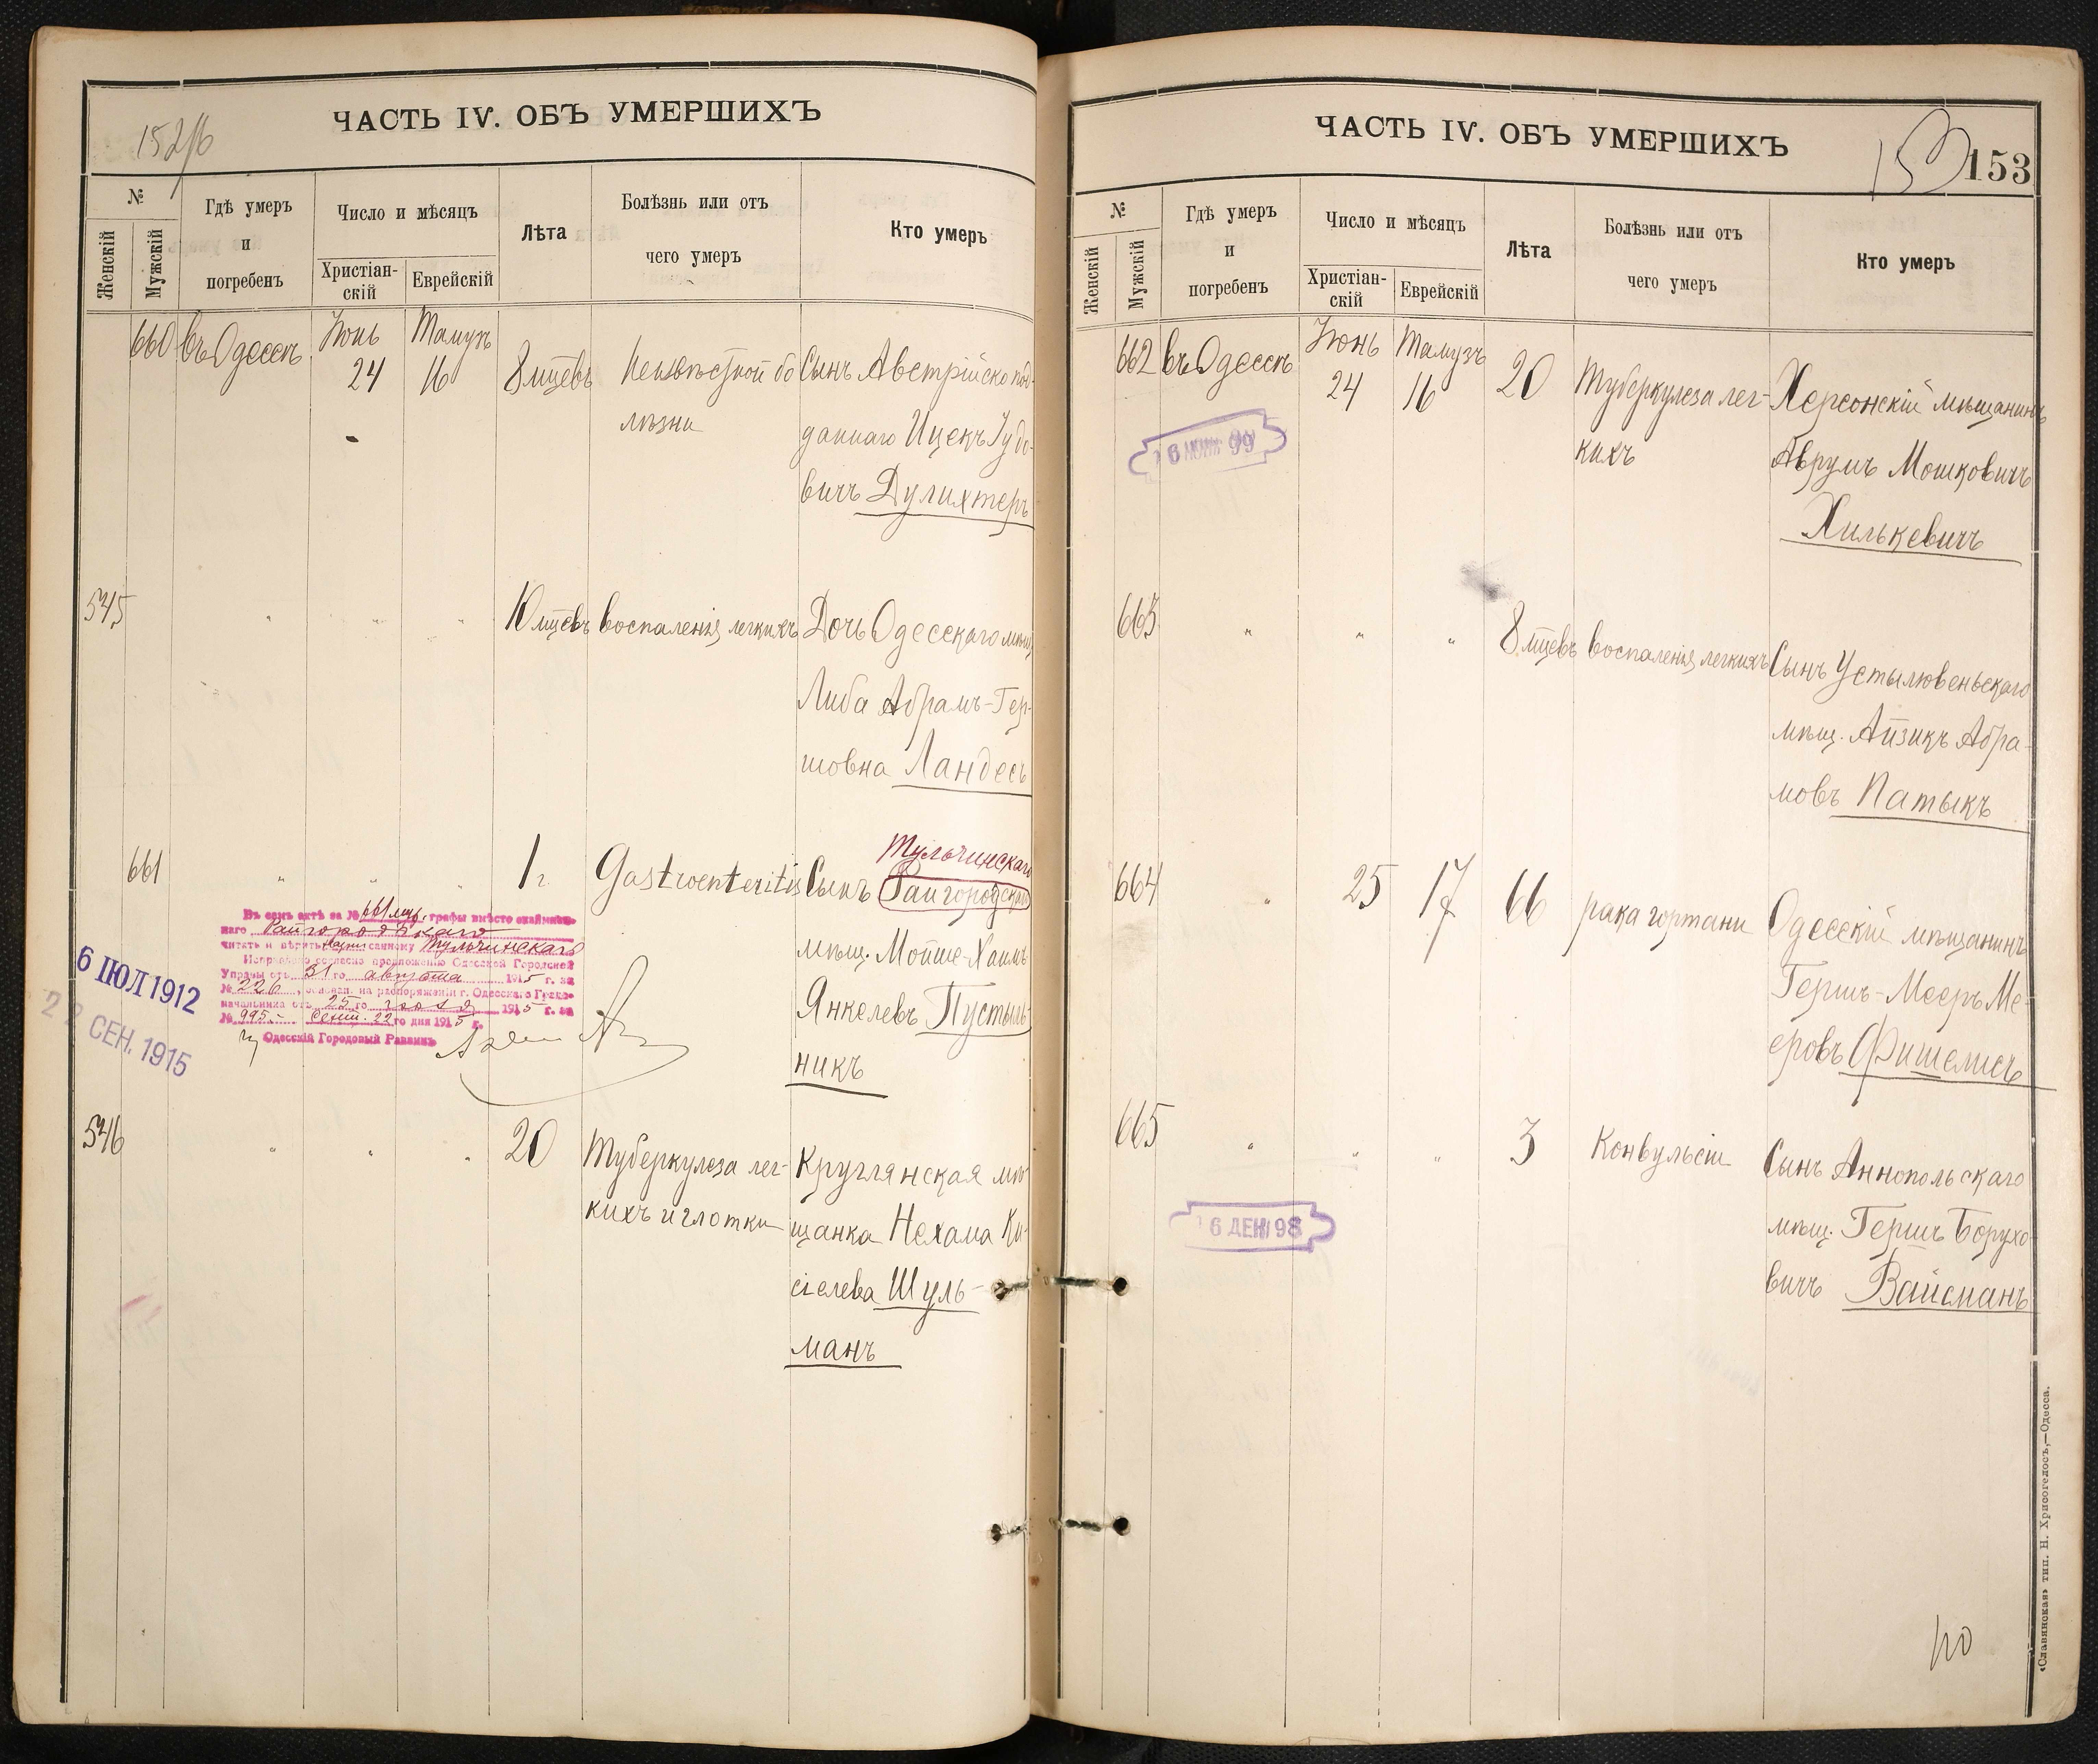 152/б
ЧАСТЬ IV. ОБЪ УМЕРШИХЪ
№
Женскій
Мужскій
Гдѣ умеръ
и
погребенъ
Число и мѣсяцъ
Христіан-
скій
Еврейскій
Лѣта
Болѣзнь или отъ
чего умеръ
Кто умеръ
660 въ Одессѣ Іюнь Тамузъ
24 16 8 мцевъ Неизвѣстной бо Сынъ Австрійско под-
лѣзни даннаго Ицекъ Іудо-
вичъ Дулихтеръ
545 " " " 10 мцевъ воспаленія легкихъ Дочь Одесскаго мѣщ.
Либа Абрамъ-Гер-
шовна Ландесъ
Тульчинскаго
661 " " " 1 г. Gastroenteritis Сынъ Райгородскаго
мѣщ. Мойше-Хаимъ
Янкелевъ Пустыль-
никъ
Въ семъ актѣ за № 661 муж. графы вмѣсто окаймлен-
наго Райгородскаго
читать и вѣрить надписанному Тульчинскаго
Исправлено согласно предложенію Одесской Городской
Управы отъ 31 го августа 1915 г. за
№ 226, основан. на распоряженіи г. Одесскаго Градо-
начальника отъ 25 го іюля 1915 г. за
№ 995.- Сент. 22 го дня 1915 г.
Одесскій Городовый Раввинъ
6 ІЮЛ 1912
22 СЕН. 1915
546 " " " 20 Туберкулеза лег- Круглянская мѣ-
кихъ и глотки щанка Нехама Ки-
сіелева Шуль-
манъ
ЧАСТЬ IV. ОБЪ УМЕРШИХЪ
153
153
№
Женскій
Мужскій
Гдѣ умеръ
и
погребенъ
Число и мѣсяцъ
Христіан-
скій
Еврейскій
Лѣта
Болѣзнь или отъ
чего умеръ
Кто умеръ
662 въ Одессѣ Іюнь Тамузъ
24 16 20 Туберкулеза лег- Херсонскій мѣщанинъ
кихъ Аврумъ Мошковичъ
Хилькевичъ
99
663 " " " 8 мцевъ воспаленія легкихъ Сынъ Устылювеньскаго
мѣщ. Айзикъ Абра-
мовъ Патыкъ
664 " 25 17 66 рака гортани Одесскій мѣщанинъ
Гершъ-Мееръ Ме-
еровъ Фишелисъ
665 " " " 3 Конвульсіи Сынъ Аннопольскаго
мѣщ. Гершъ Борухо-
вичъ Вайсманъ
6 ДЕК 98
«Славянская» тип. Н. Хрисогелосъ,—Одесса.